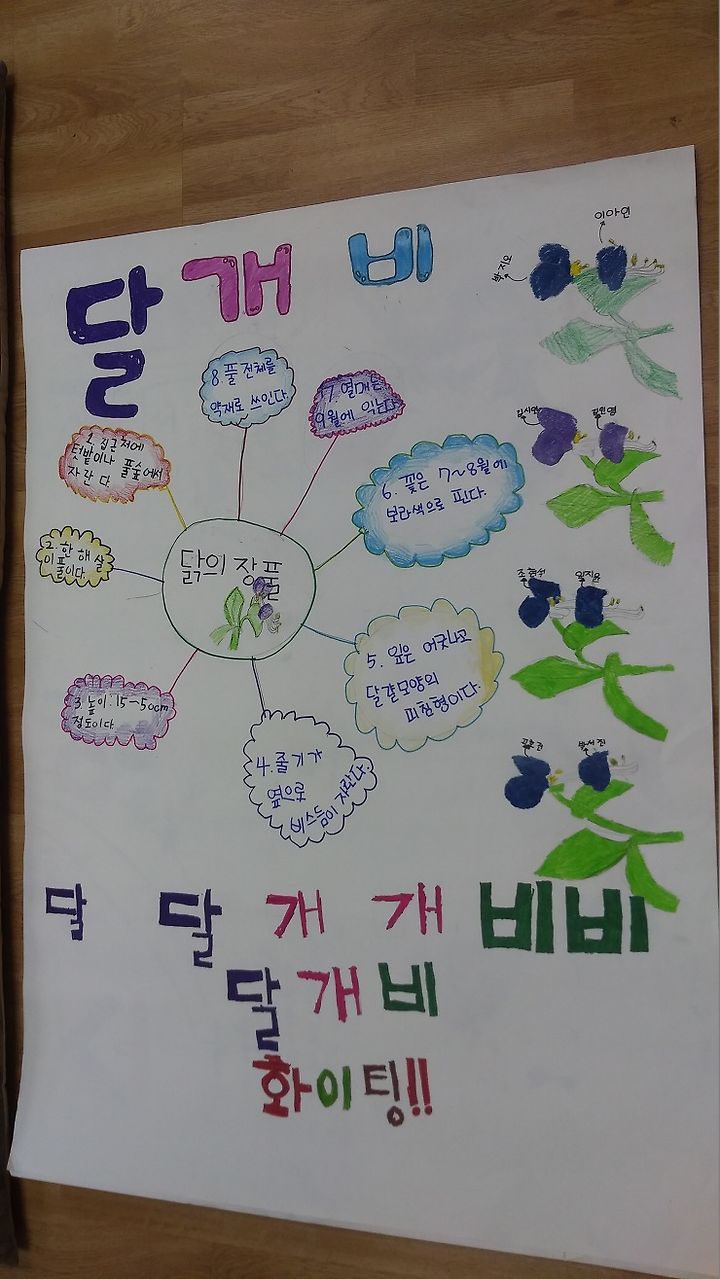 달개비
이아인
8. 풀 전체를
약재로 쓰인다.
7. 열매는
9월에 익는다
1. 집근처에
텃밭이나 풀숲에서
자란다.
6. 꽃은 7~8월에
보라색으로 핀다.
2. 한해살
이풀이다.
닭의장풀
5. 잎은 어긋나고
달걀모양의
피침형이다.
3. 높이:15~50cm
정도이다.
4. 줄기가
옆으로
비스듬이 자란다.
달 달 개 개 비비
달개비
화이팅!!